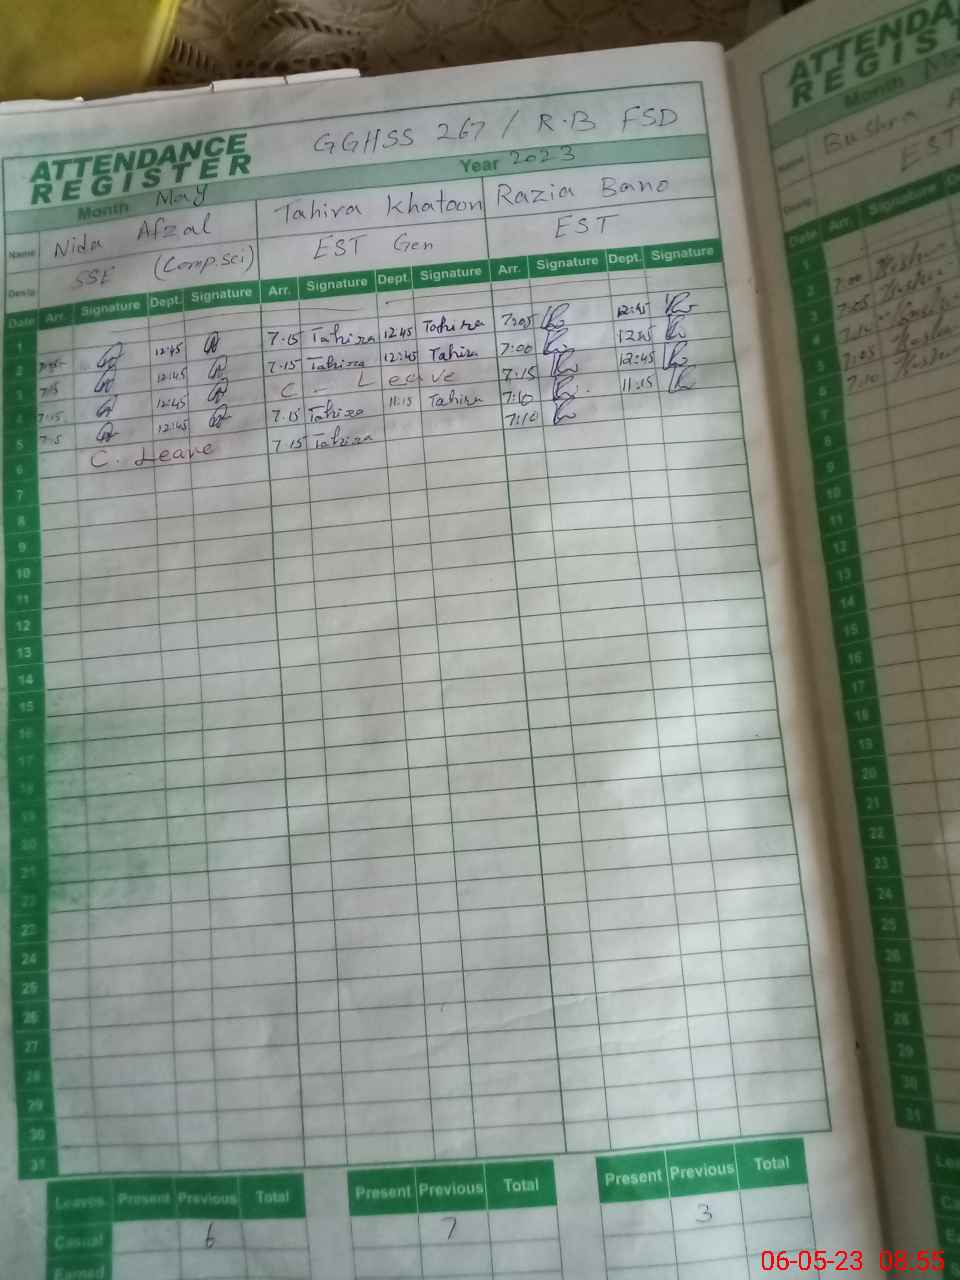 ATTENDANCE REGISTER
GGHSS 267 / R.B FSD
Month May Year 2023
Name Nida Afzal Tahira Khatoon Razia Bano
Desig SSE (Comp.sci) EST Gen EST
Date Arr. Signature Dept. Signature Arr. Signature Dept. Signature Arr. Signature Dept. Signature
1
2 12:45 7.15 Tahira 12:45 Tahira 7:05 12:45
3 7:15 12:45 7.15 Tahira 12:45 Tahira 7:00 12:45
4 7:15 12:45 C. Leave 7:15 12:45
5 12:45 7.15 Tahira 11:15 Tahira 7:10 11:15
6 C. Leave 7.15 Tahira 7:10
7
8
9
10
11
12
13
14
15
16
17
18
19
20
21
22
23
24
25
26
27
28
29
30
31
Leaves Present Previous Total Present Previous Total Present Previous Total
Casual 6 7 3
Earned
ATTENDA
REGIST
Month
Name Bushra
Desig EST
Date Arr. Signature
1
2 7:00
3 7:05
4
5 7:05
6 7:10
7
8
9
10
11
12
13
14
15
16
17
18
19
20
21
22
23
24
25
26
27
28
29
30
31
06-05-23 08:55